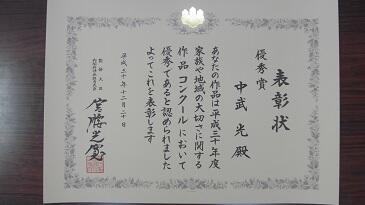 表彰状
優秀賞
中武 光 殿
あなたの作品は平成三十年度
家族や地域の大切さに関する
作品コンクールにおいて
優秀であると認められました
よってこれを表彰します
平成三十年十二月二十日